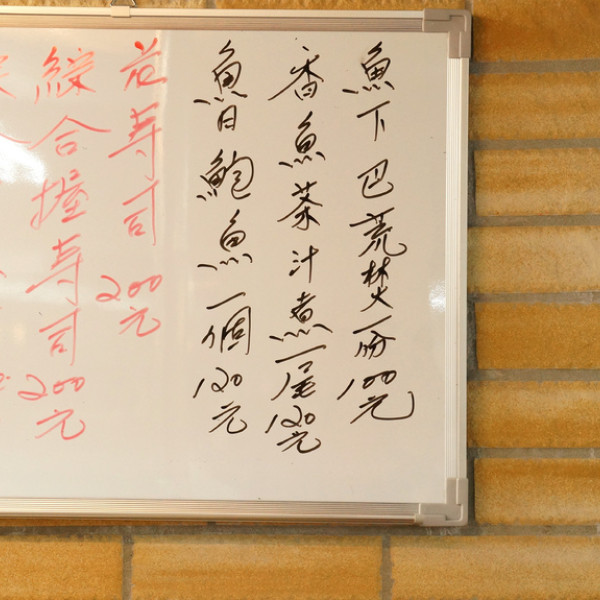 魚下巴荒焚一份100元
香魚茶汁煮一尾120元
魚日鮑魚一個120元
花寿司200元
綜合握寿司200元